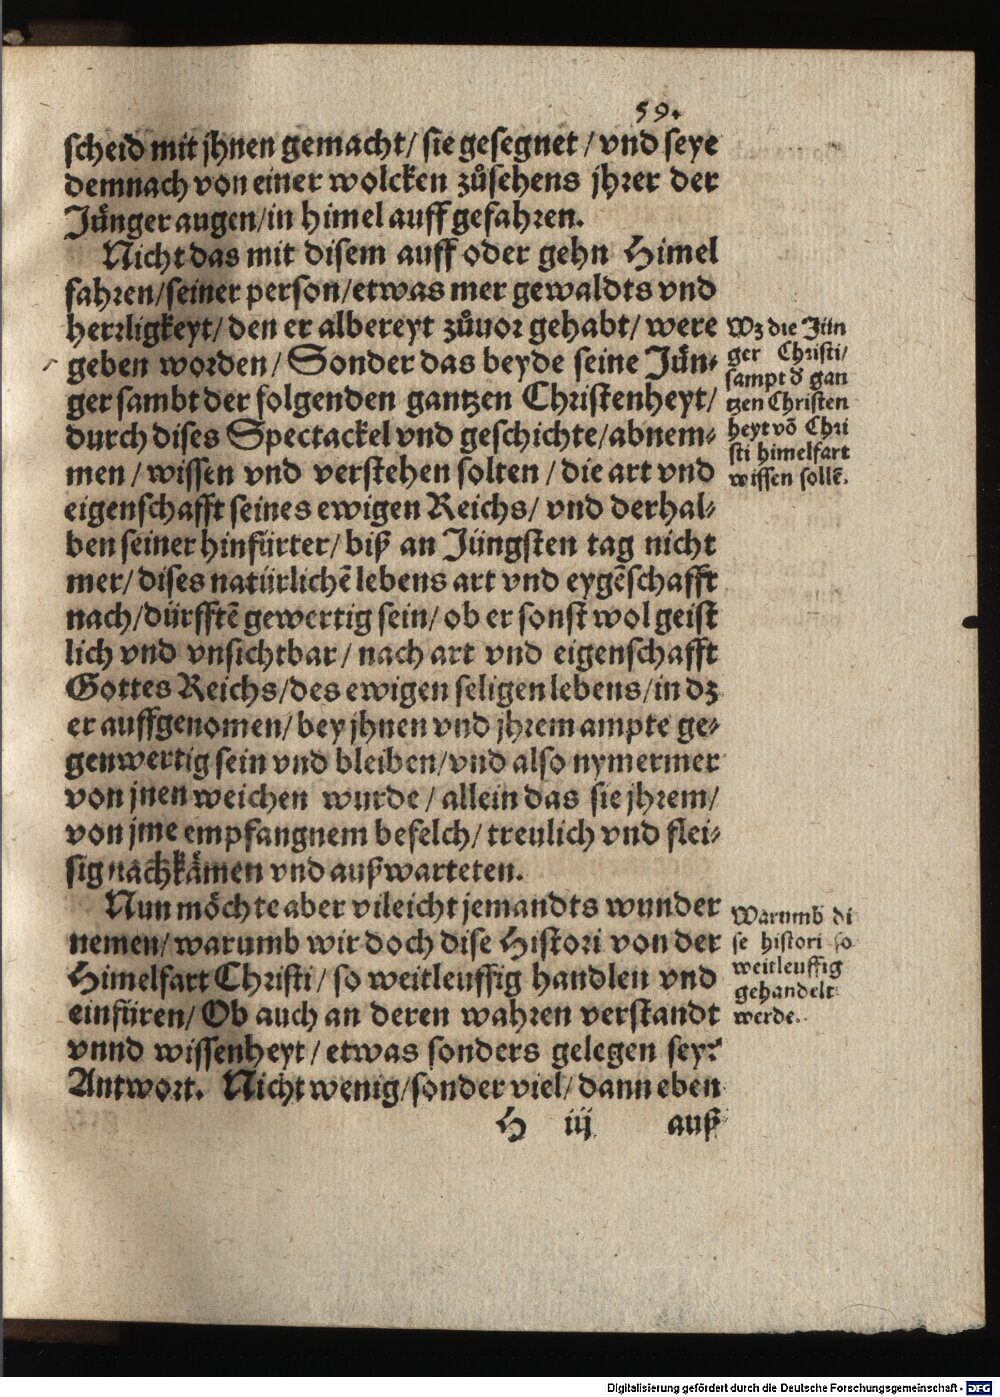 59.
scheid mit jhnen gemacht/ sie gesegnet / vnd seye
demnach von einer wolcken zůsehens jhrer der
Jünger augen/in himel auff gefahren.
Nicht das mit disem auff oder gehn Himel
fahren/seiner person/etwas mer gewaldts vnd
herrligkeyt/ den er albereyt zůuor gehabt/ were
geben worden/ Sonder das beyde seine Jün⸗
ger sambt der folgenden gantzen Christenheyt/
durch dises Spectackel vnd geschichte/abnem⸗
men / wissen vnd verstehen solten / die art vnd
eigenschafft seines ewigen Reichs/ vnd derhal⸗
ben seiner hinfürter/ biß an Jüngsten tag nicht
mer/ dises natürlichē lebens art vnd eygēschafft
nach/dürfftē gewertig sein/ ob er sonst wol geist
lich vnd vnsichtbar/ nach art vnd eigenschafft
Gottes Reichs/des ewigen seligen lebens/in dz
er auffgenomen/bey jhnen vnd jhrem ampte ge⸗
genwertig sein vnd bleiben/vnd also nymermer
von jnen weichen wurde / allein das sie jhrem/
von jme empfangnem befelch/ treulich vnd flei⸗
sig nachkämen vnd außwarteten.
Nun möchte aber vileicht jemandts wunder
nemen/ warumb wir doch dise Histori von der
Himelfart Christi/ so weitleuffig handlen vnd
einfüren/ Ob auch an deren wahren verstandt
vnnd wissenheyt/ etwas sonders gelegen sey?
Antwort. Nicht wenig/sonder viel/ dann eben
H iij auß
Wz die Jün
ger Christi/
sampt d̕ gan
tzen Christen
heyt võ Chri
sti himelfart
wissen sollē.
Warumb di
se histori so
weitleuffig
gehandelt
werde.
Digitalisierung gefördert durch die Deutsche Forschungsgemeinschaft - DFG